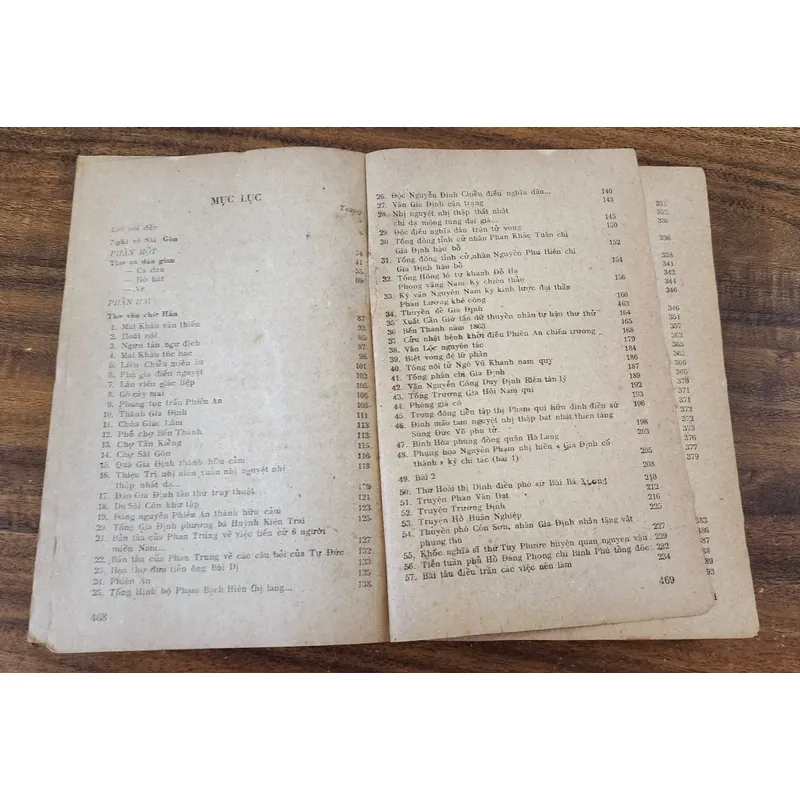 MỤC LỤC
Trang
Lời nói đầu 5
Nghĩ về Sài Gòn
PHẦN MỘT 34
Thơ ca dân gian 41
— Ca dao 55
— Hò hát 69
— Vè
PHẦN HAI
Thơ văn chữ Hán 87
1. Mai Khâu văn thiếu 93
2. Hoài nội 95
3. Ngưu tân ngư địch 97
4. Mai Khâu túc hạc 98
5. Liên Chiểu miên âu 101
6. Phú gia điểu nguyệt 102
7. Lân viên giác liệp 103
8. Gò cây mai 105
9. Phong tục trấn Phiên An 108
10. Thành Gia Định 111
11. Chùa Giác Lâm 112
12. Phố chợ Bến Thành 113
13. Chợ Tân Kiểng 115
14. Chợ Sài Gòn 116
15. Quá Gia Định thành hữu cảm 118
16. Thiệu Trị nhị niên xuân nhị nguyệt nhị
thập nhất dạ... 120
17. Đáo Gia Định tân thự truy thuật 121
18. Du Sài Côn khư tập 123
19. Đăng nguyên Phiên An thành hữu cảm 124
20. Tống Gia Định phương bá Huỳnh Kiên Trai 125
21. Bản tấu của Phan Trung về việc tiến cử 6 người
miền Nam... 127
22. Bản tấu của Phan Trung về các câu hỏi của Tự Đức 132
23. Họa thơ đưa tiễn ông Bùi Dị 133
24. Phiên An 135
25. Tống Hình bộ Phạm Bạch Hiên thị lang... 138
468
26. Độc Nguyễn Đình Chiểu điếu nghĩa dân... 140
27. Văn Gia Định cận trạng 143
28. Nhị nguyệt nhị thập thất nhật
chi dạ mộng tùng đại giá... 145
29. Độc điếu nghĩa dân trận tử vong 150
30. Tổng đông tỉnh cử nhân Phan Khắc Tuân chi
Gia Định hậu bổ 152
31. Tổng đông tỉnh cử nhân Nguyễn Phu Hiên chi
Gia Định hậu bổ 154
32. Tống Hồng lô tự khanh Đỗ Hạ
Phong vãng Nam Kỳ chiêu thảo 156
33. Ký văn Nguyên Nam kỳ kinh lược đại thần
Phan Lương khê công 160
34. Thuyền để Gia Định 163
35. Xuất Cần Giờ tấn dữ thuyền nhân tự hậu thư thử 164
36. Bến Thành năm 1863 165
37. Cửu nhật bệnh khởi điếu Phiên An chiến trường 168
38. Vãn Lộc nguyên tác 179
39. Biệt vong đệ lữ phần 184
40. Tống nội tử Ngô Vũ Khanh nam quy 186
41. Tống nhân chi Gia Định 187
42. Vãn Nguyễn Công Duy Định Biên tán lý 189
43. Tống Trương Gia Hội Nam qui 192
44. Phỏng giá cô 193
45. Trọng đông tiền tập thị Phạm qui hữu dinh điền sứ 196
46. Đinh mão tam nguyệt nhị thập bát nhật thiên táng
Sùng Đức Võ phu tử 198
47. Bình Hóa phùng đồng quận Hà Lang 203
48. Phụng họa Nguyên Phạm nhị hiền « Gia Định cố
thành » kỷ chi tác (bài 1) 205
49. Bài 2 208
50. Thư Hoài thị Dinh điền phó sứ Bùi Bá Xương 210
51. Truyện Phan Văn Đạt 212
52. Truyện Trương Định 216
53. Truyện Hồ Huân Nghiệp 225
54. Thuyền phó Côn Sơn, nhân Gia Định nhân tặng vật
phụng thủ 227
55. Khốc nghĩa sĩ thứ Tuy Phước huyện quan nguyên vận 229
56. Tiễn tuần phủ Hồ Đăng Phong chi Bình Phú tổng đốc 222
57. Bài tấu điều trần các việc nên làm 234
469
331
336
338
342
344
346
346
351
357
363
366
365
370
371
372
373
376
377
379
383
486
87
88
89
93